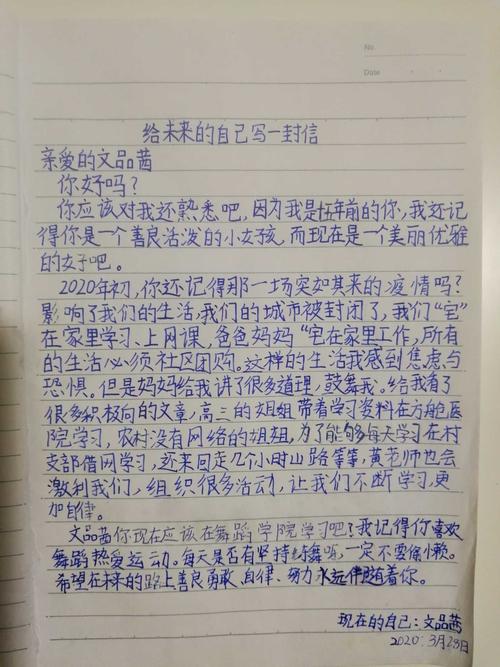 No.
Date
给未来的自己写一封信
亲爱的文品茜
你好吗？
你应该对我还熟悉吧，因为我是五年前的你，我还记
得你是一个善良活泼的小女孩，而现在是一个美丽优雅
的女子吧。
2020年初，你还记得那一场突如其来的疫情吗？
影响了我们的生活，我们的城市被封闭了，我们“宅”
在家里学习、上网课，爸爸妈妈“宅在家里工作，所有
的生活必须社区团购。这样的生活我感到焦虑与
恐惧。但是妈妈给我讲了很多道理，鼓舞我。给我看了
很多积极向的文章，高三的姐姐带着学习资料在方舱医
院学习，农村没有网络的姐姐，为了能够每天学习在村
支部借网学习，还来回走几个小时山路等等，黄老师也会
激利我们，组织很多活动，让我们不断学习，更
加自律。
文品茜你现在应该在舞蹈学院学习吧？我记得你喜欢
舞蹈热爱运动。每天是否有坚持练舞呢，一定不要偷懒。
希望在未来的路上善良勇敢、自律、努力永远伴随着你。
现在的自己：文品茜
2020.3月28日